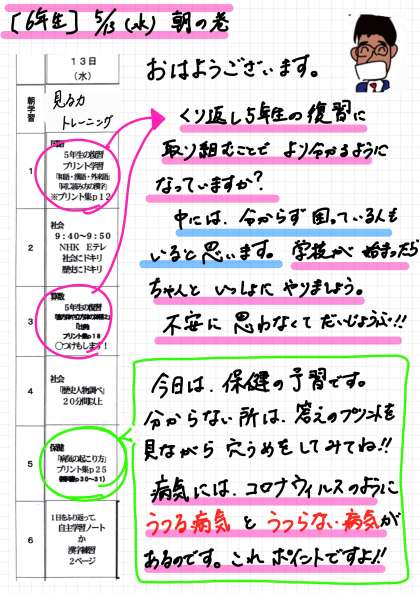 [6年生] 5/13(水) 朝の巻
おはようございます。
くり返し5年生の復習に
取り組むことで より分かるように
なっていますか?
中には、分からず困っている人も
いると思います。学校が 始まったら
ちゃんと いっしょに やりましょう。
不安に 思わなくて だいじょうぶ!!
今日は、保健の予習です。
分からない所は、答えのプリントを
見ながら 穴うめをしてみてね!!
病気には、コロナウィルスのように
うつる病気 と うつらない病気が
あるのです。これ ポイントですよ!!
13日
(水)
朝学習
見る力
トレーニング
1
国語
5年生の復習
プリント学習
「和語・漢語・外来語」
「同じ読み方の漢字」
※プリント集p12
2
社会
9:40~9:50
NHK Eテレ
社会にドキリ
歴史にドキリ
3
算数
5年生の復習
プリント集p18
〇つけもします!
4
社会
「歴史人物調べ」
20分間以上
5
保健
「病気の起こり方」
プリント集p25
6
1日をふり返って、
自主学習ノート
か
漢字練習
2ページ